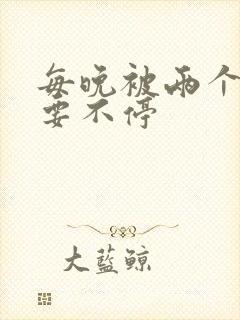 每晚被两个
要不停
大蓝鲸